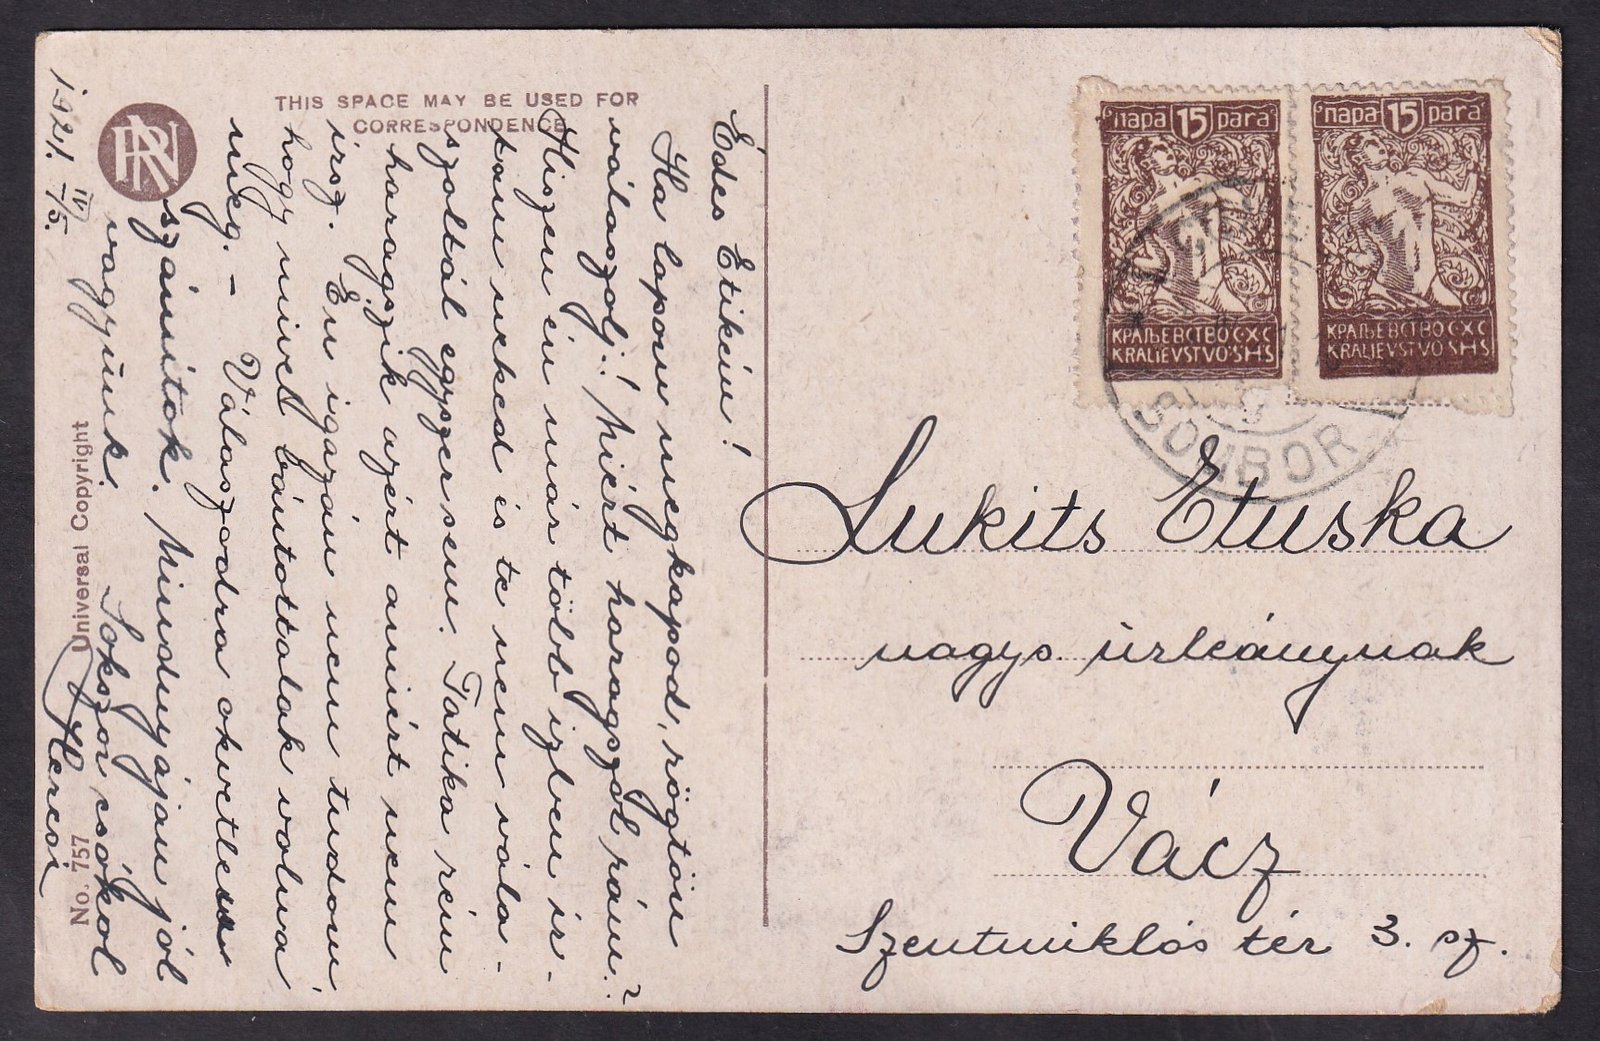 THIS SPACE MAY BE USED FOR
CORRESPONDENCE
RN
1921. IV/5.
Édes Etikém!
Ha lapom megkapod, rögtön
válaszolj! Miért haragszol rám?
Hiszen én már több izben ir-
tam neked is te nem vála-
szoltál egyszersem. Tatika rém
haragszik azért amiért nem
irsz. Én igazán nem tudom,
hogy mivel bántottalak volna
meg. - Válaszodra okvetlen
számitok. Mindnyájan jól
vagyunk.
Sokszor csókol
Universal Copyright
No. 757
пара 15 para
КРАЉЕВСТВО СХС
KRALJEVSTVO SHS
пара 15 para
КРАЉЕВСТВО СХС
KRALJEVSTVO SHS
SOMBOR
Lukits Etuska
nagys. úrleánynak
Vácz
Szentmiklós tér 3. sz.